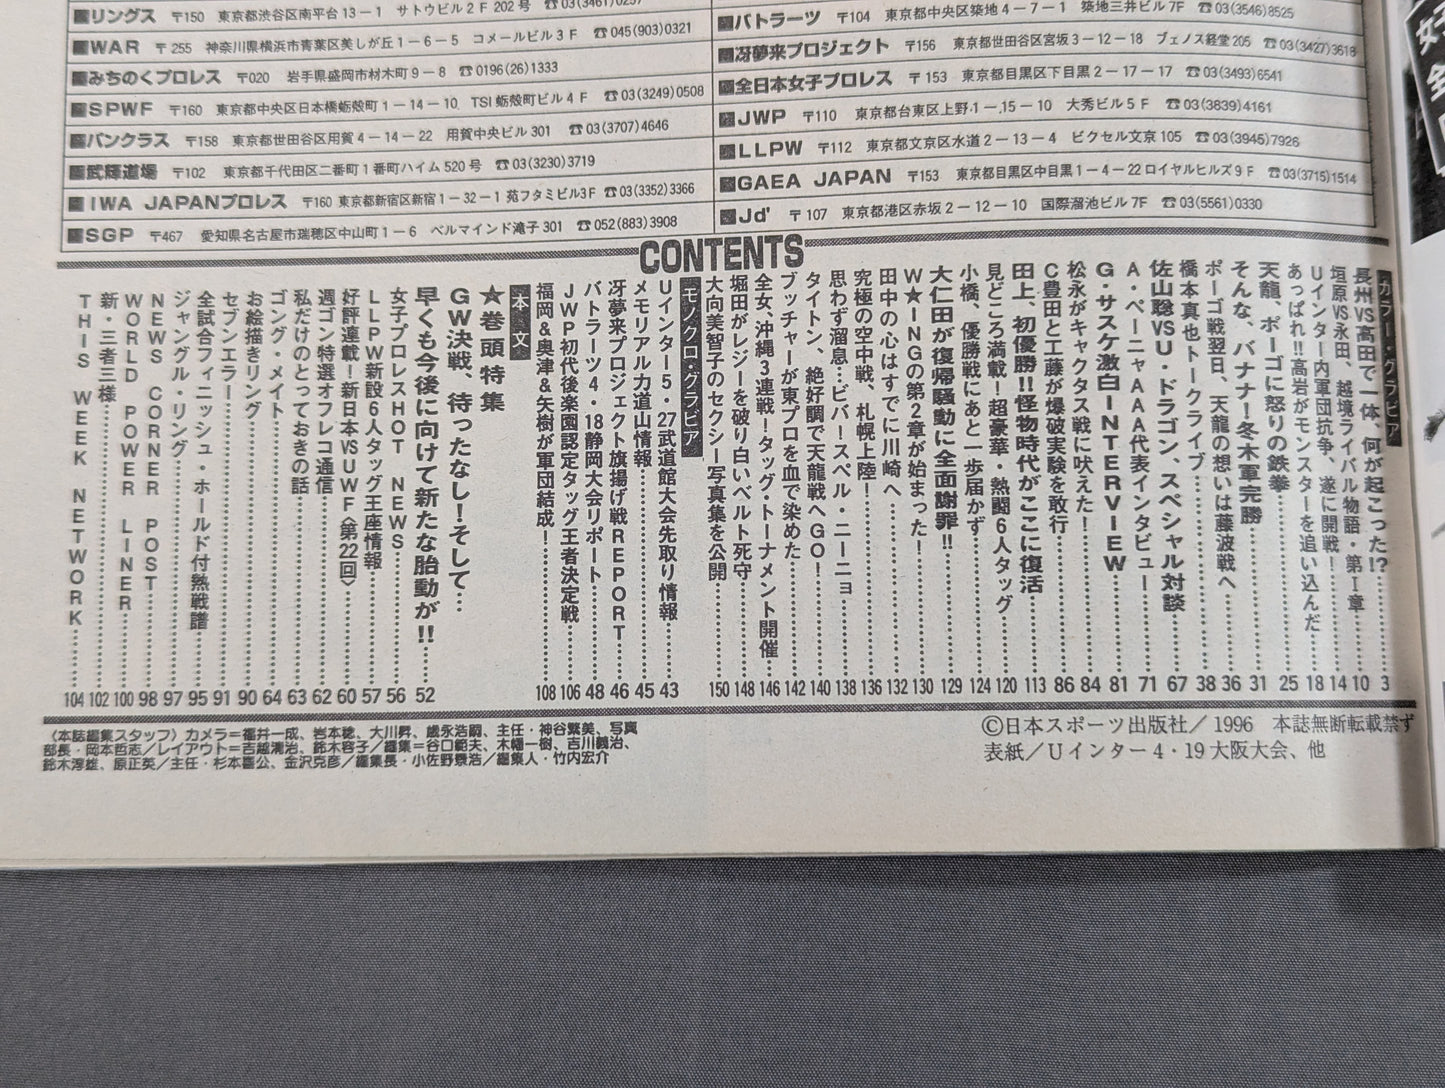 ■リングス 〒150 東京都渋谷区南平台13-1 サトウビル2F202号 ☎03(3461)0257
■WAR 〒255 神奈川県横浜市青葉区美しが丘1-6-5 コメールビル3F ☎045(903)0321
■みちのくプロレス 〒020 岩手県盛岡市材木町9-8 ☎0196(26)1333
■SPWF 〒160 東京都中央区日本橋蛎殻町1-14-10 TSI蛎殻町ビル4F ☎03(3249)0508
■パンクラス 〒158 東京都世田谷区用賀4-14-22 用賀中央ビル301 ☎03(3707)4646
■武輝道場 〒102 東京都千代田区二番町1番町ハイム520号 ☎03(3230)3719
■IWA JAPANプロレス 〒160 東京都新宿区新宿1-32-1 苑フタミビル3F ☎03(3352)3366
■SGP 〒467 愛知県名古屋市瑞穂区中山町1-6 ベルマインド滝子301 ☎052(883)3908
■バトラーツ 〒104 東京都中央区築地4-7-1 築地三井ビル7F ☎03(3546)8525
■冴夢来プロジェクト 〒156 東京都世田谷区宮坂3-12-18 ブェノス経堂205 ☎03(3427)3618
■全日本女子プロレス 〒153 東京都目黒区下目黒2-17-17 ☎03(3493)6541
■JWP 〒110 東京都台東区上野1-15-10 大秀ビル5F ☎03(3839)4161
■LLPW 〒112 東京都文京区水道2-13-4 ビクセル文京105 ☎03(3945)7926
■GAEA JAPAN 〒153 東京都目黒区中目黒1-4-22ロイヤルヒルズ9F ☎03(3715)1514
■Jd' 〒107 東京都港区赤坂2-12-10 国際溜池ビル7F ☎03(5561)0330
CONTENTS
カラー・グラビア
長州VS高田で一体、何が起こった!?……3
垣原VS永田、越境ライバル物語・第Ⅰ章……10
Uインター内軍団抗争、遂に開戦!……14
あっぱれ!!高岩がモンスターを追い込んだ……18
天龍、ポーゴに怒りの鉄拳……25
そんな、バナナ!冬木軍完勝……31
ポーゴ戦翌日、天龍の想いは藤波戦へ……36
橋本真也トークライブ……38
佐山聡VSU・ドラゴン、スペシャル対談……67
A・ペーニャAAA代表インタビュー……71
G・サスケ激白INTERVIEW……81
松永がキャクタス戦に吠えた!……84
C豊田と工藤が爆破実験を敢行……86
田上、初優勝!!怪物時代がここに復活……113
見どころ満載!超豪華・熱闘6人タッグ……120
小橋、優勝戦にあと一歩届かず……124
大仁田が復帰騒動に全面謝罪!!……129
W★INGの第2章が始まった!……130
田中の心はすでに川崎へ……132
究極の空中戦、札幌上陸!……136
思わず溜息…ビバースペル・ニーニョ……138
タイトン、絶好調で天龍戦へGO!……140
ブッチャーが東プロを血で染めた……142
全女、沖縄3連戦!タッグ・トーナメント開催……146
堀田がレジーを破り白いベルト死守……148
大向美智子のセクシー写真集を公開……150
モノクロ・グラビア
Uインター5・27武道館大会先取り情報……43
メモリアル力道山情報……45
冴夢来プロジェクト旗揚げ戦REPORT……46
バトラーツ4・18静岡大会リポート……48
JWP初代後楽園認定タッグ王者決定戦……106
福岡&奥津&矢樹が軍団結成!……108
本文
★巻頭特集
GW決戦、待ったなし!そして…
早くも今後に向けて新たな胎動が!!……52
女子プロレスHOT NEWS……56
LLPW新設6人タッグ王座情報……57
好評連載!新日本VSUWF〈第22回〉……60
週ゴン特選オフレコ通信……62
私だけのとっておきの話……63
ゴング・メイト……64
お絵描きリング……90
セブンエラー……91
全試合フィニッシュ・ホールド付熱戦譜……95
ジャングル・リング……97
NEWS CORNER POST……98
WORLD POWER LINER……100
新・三者三様……102
THIS WEEK NETWORK……104
〈本誌編集スタッフ〉カメラ=福井一成、岩本稔、大川昇、歳永浩嗣、主任・神谷繁美、写真
部長・岡本哲志/レイアウト=吉越清治、鈴木容子/編集=谷口範夫、木幡一樹、吉川義治、
鈴木淳雄、原正英/主任・杉本喜公、金沢克彦/編集長・小佐野景浩/編集人・竹内宏介
©日本スポーツ出版社/1996 本誌無断転載禁ず
表紙/Uインター4・19大阪大会、他